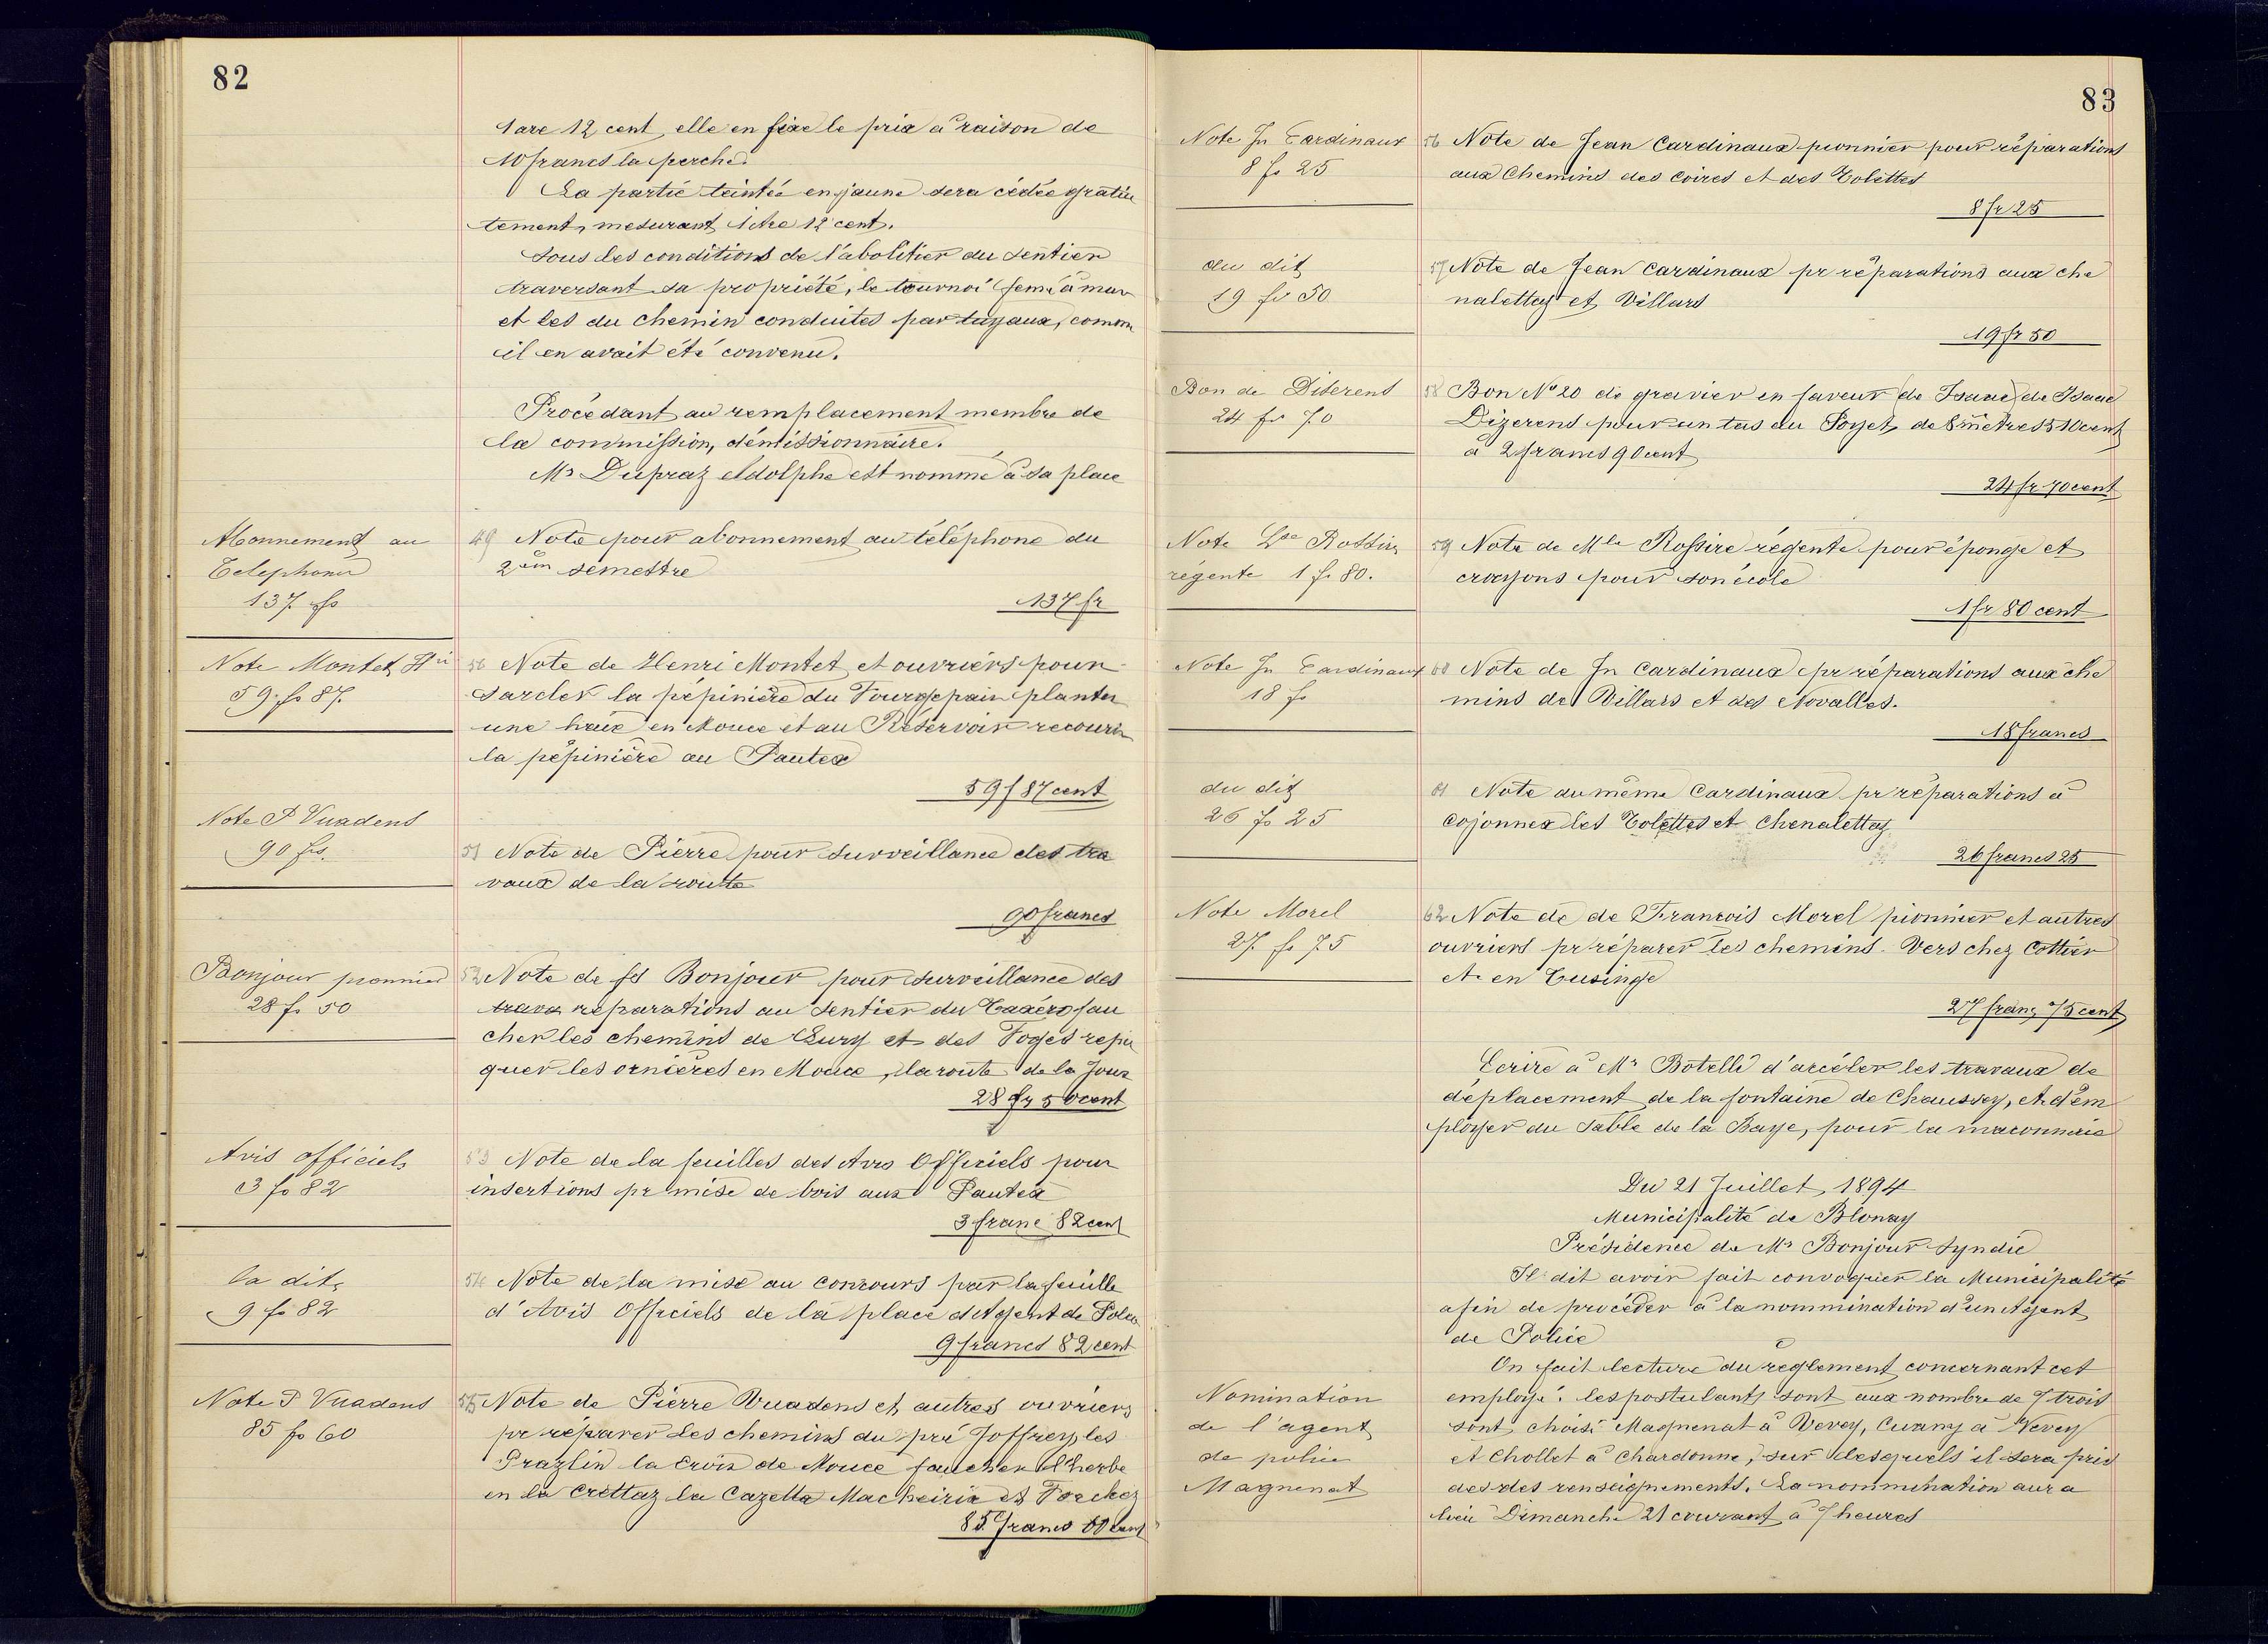 82
1 are 12 cent, elle en fixe le prix à raison de
10 francs la perche.
La partie teintée en jaune sera cédée gratui
tement, mesurant 1 Are 12 cent.
Sous les conditions de l'abolition du sentier
traversant sa propriété, le tournoi semé à mar
et les du chemin conduites par tuyaux, comm
il en avait été convenu.
Procédant au remplacement membre de
la commission, démissionnaire.
Mr Dupraz Adolphe est nommé à sa place
Abonnement au
Telephone
137 fr
49 Note pour abonnement au téléphone du
2em semestre
137 fr
Note Montet Hri
59 fr 87
50 Note de Henri Montet et ouvriers pour
sarcler la pépinière du Fourgepain planter
une haie en Mouce et au Réservoir recourir
la pépinière au Pautex
59 f 87 cent
Note P Vuadens
90 frs.
51 Note de Pierre pour surveillance des tra
vaux de la route
90 francs
Bonjour pionnier
28 fr 50
52 Note de fs Bonjour pour surveillance des
trava reparations au sentier du fau
cher les chemins de Cury et des Foges repi
quer les ornières en Mouce, la route de la Jour
28 fr 50 cent
Avis officiels
3 fr 82
53 Note de la feuilles des Avis Officiels pour
insertions pr mise de bois aux Pautex
3 franc 82 cent
la dite
9 fr 82
54 Note de la mise au concours par la feuille
d'Avis Officiels de la place d'Agent de Police
9 francs 82 cent
Note P Vuadens
85 fr 60
55 Note de Pierre Vuadens et autres ouvriers
pr réparer les chemins du pré Joffrey, les
Prazlin la Croix de Mouce faucher l'herbe
en la Crettaz la Cazetta Macheirix et
85 francs 60 cent
83
Note Jn Cardinaux
8 fr 25
56 Note de Jean Cardinaux pionnier pour réparations
aux Chemins des Coires et des Tolettes
8 fr 25
du dit
19 fr 50
57 Note de Jean Cardinaux pr réparations aux che
nalettaz et Villars
19 fr 50
Bon de Diserens
24 fr 70
58 Bon No 20 de gravier en faveur de Isaac de Isaac
Dizerens pour un tas au Poyet, de 8 mètres 510 cent
à 2 francs 90 cent
24 fr 70 cent
Note Lse Rossire
régente 1 fr 80.
59 Note de Mlle Rossire régente pour éponge et
crayons pour son école
1 fr 80 cent
Note Jn Cardinaux
18 fr
60 Note de Jn Cardinaux pr réparations aux che
mins de Villars et des Novalles.
18 francs
du dit
26 fr 25
61 Note du même Cardinaux pr réparations à
Cojonnex les Tolettes et Chenalettaz
26 francs 25
Note Morel
27 fr 75
62 Note de de François Morel pionnier et autres
ouvriers pr réparer les chemins Vers chez Cottier
et en Tusinge
27 franc 75 cent
Ecrire à Mr Botelli d'arcéler les travaux de
déplacement de la fontaine de Chaussey, et d'em
ployer du sable de la Baye, pour la maconnerie
Du 21 Juillet 1894
Municipalité de Blonay
Présidence de Mr Bonjour Syndic
Il dit avoir fait convoquer la Municipalité
afin de procéder à la nommination d'un Agent
de Police
On fait lecture du reglement concernant cet
Nomination
de l'agent
de police
Magnenat
employé. les postulants sont aux nombre de 7 trois
sont choisi Magnenat à Vevey, Cuany à Vevey
et Chollet à Chardonne, sur lesquels il sera pris
des des renseignements. La nommination aura
lieu Dimanche 21 courant à 7 heures